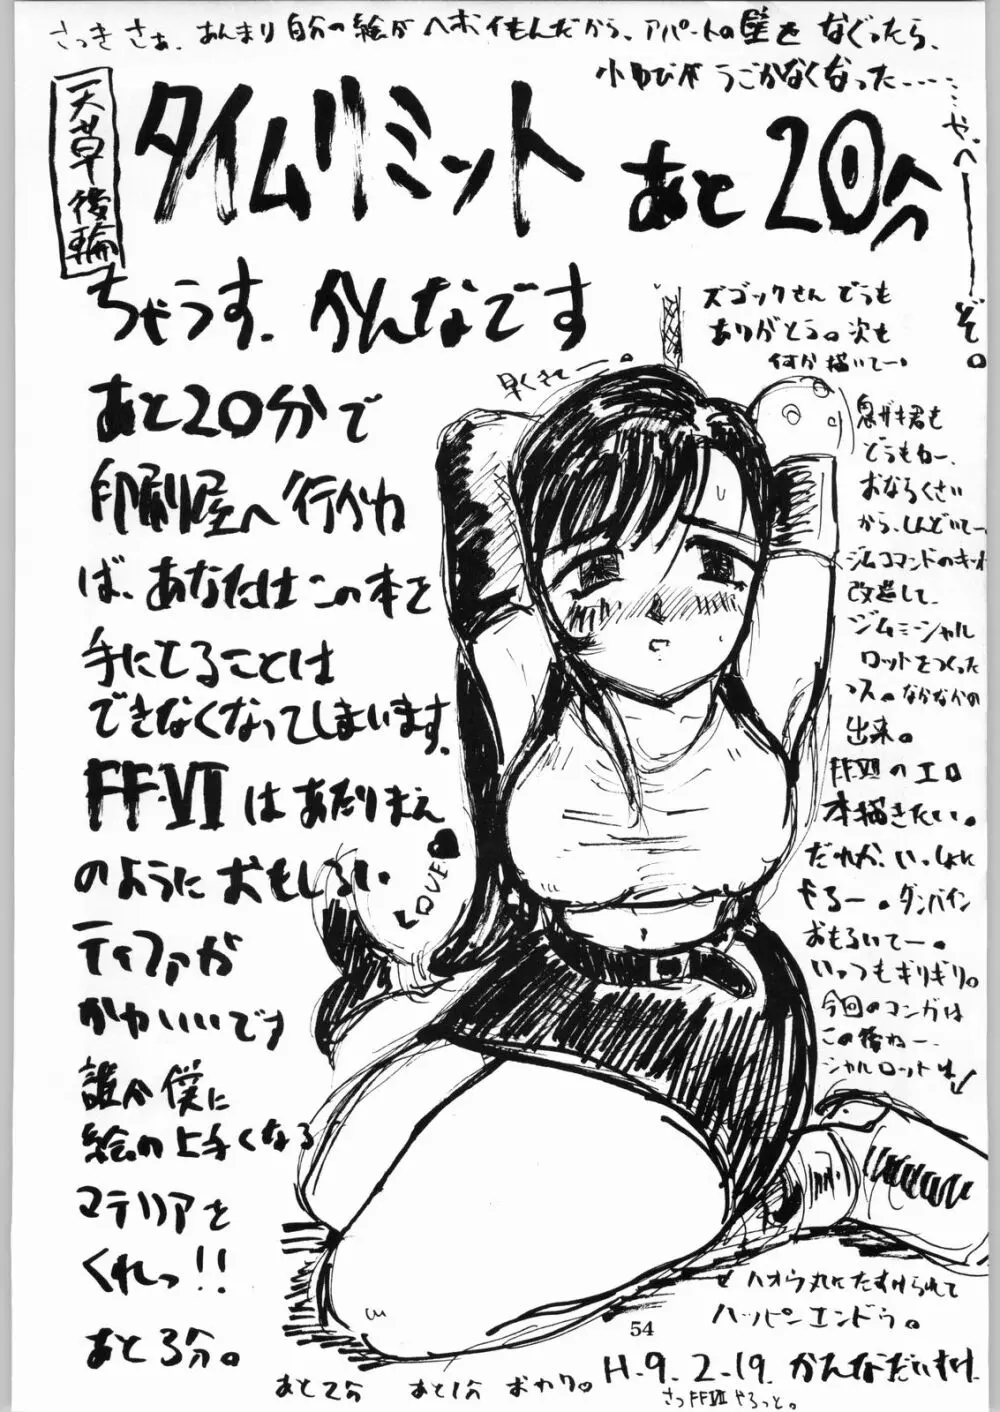 さっきさぁ、あんまり自分の絵がヘボイもんだから、アパートの壁をなぐったら、
小ゆびがうごかなくなった……
や、べーーーぞ。
天草後輪
タイムリミット あと20分
ちゃうす、かんなです
あと20分で
印刷屋へ行かね
ば、あなたはこの本を
手にとることは
できなくなってしまいます。
FF.VIIはあたりまえ
のようにおもしろい
ティファが
かわいいです
誰か僕に
絵の上手くなる
マテリアを
くれっ!!
あと3分。
あと2分 あと1分 おわり。
早くきてー。
LOVE
ズゴックさんどうも
ありがとう。次も
何か描いてー。
君も
どうもねー、
おならくさい
から、しんどいてー、
ジムコマンドのキット
改造して、
ジムミーシャル
ロットをつくった
ス。なかなかの
出来。
FFVIIのエロ
本描きたい。
だれか、いっしょに
やろー。ダンバイン
おもろいてー。
いっつもギリギリ。
今回のマンガは
この後ねー、
シャルロットは
ハオウ丸にたすけられて
ハッピンエンドゥ。
54
H.9.2.19. かんなだいすけ
さっFFVIIやろっと。